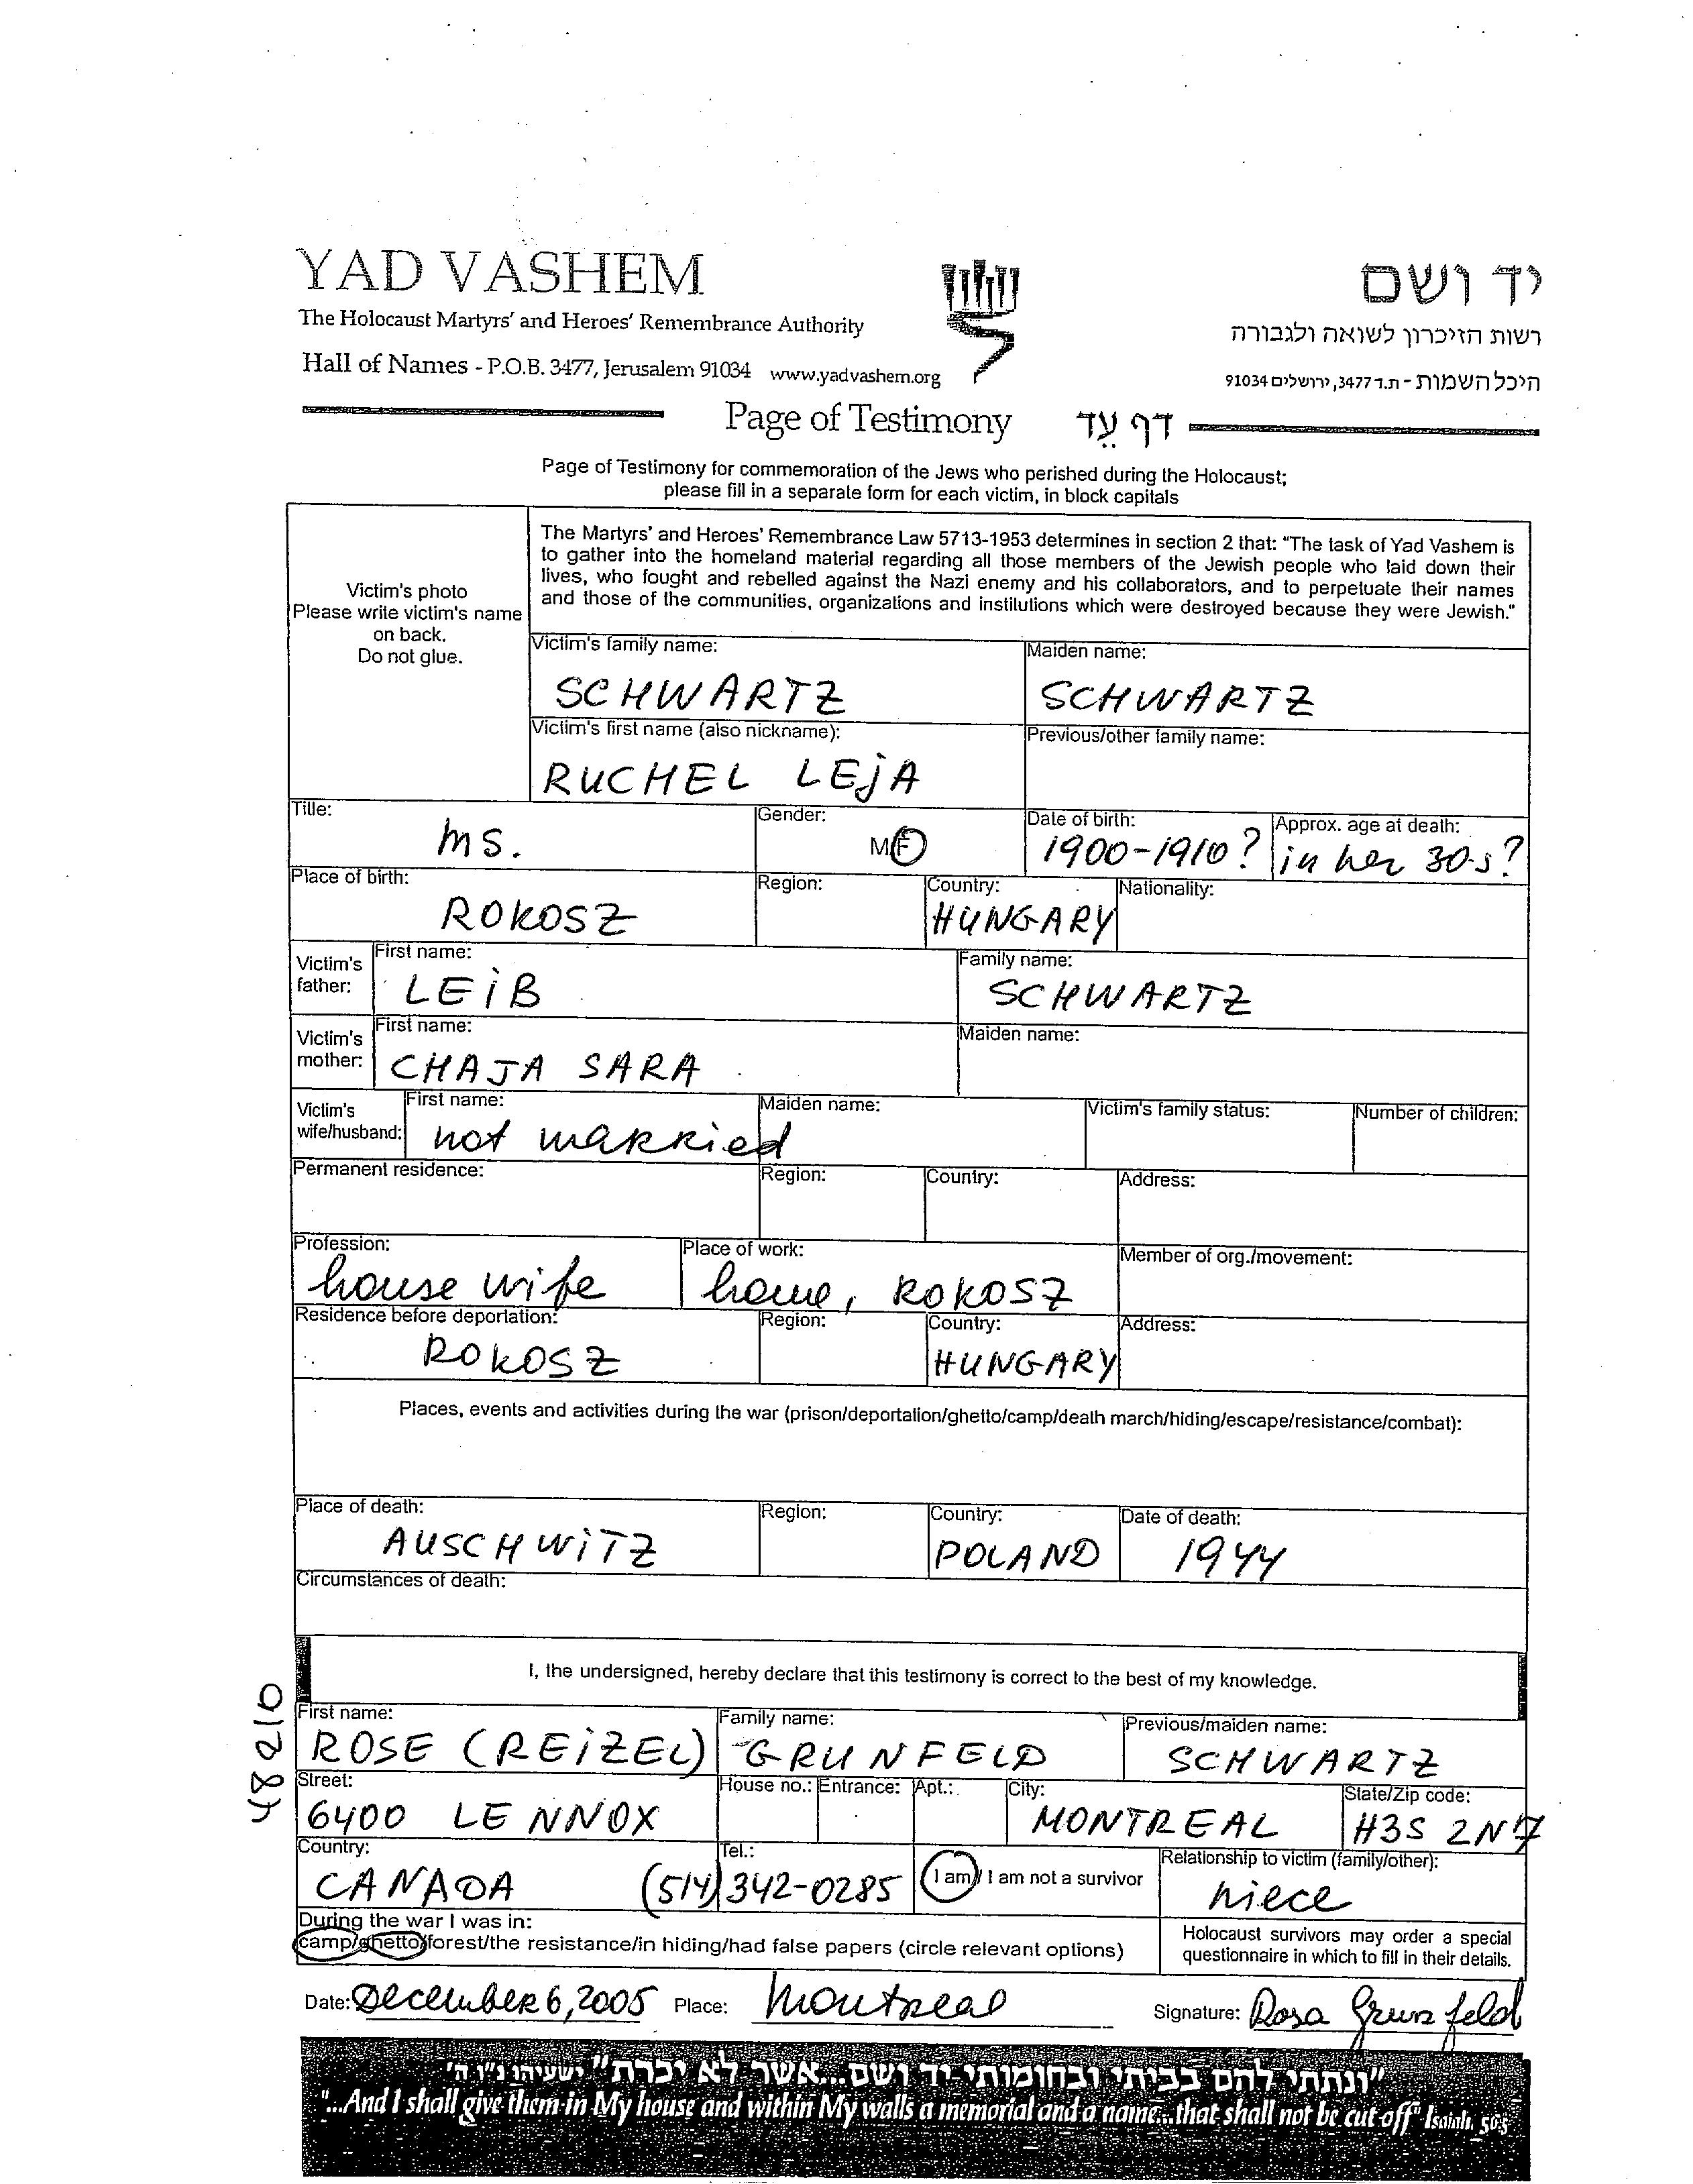 YAD VASHEM
יד ושם
The Holocaust Martyrs' and Heroes' Remembrance Authority
רשות הזיכרון לשואה ולגבורה
Hall of Names - P.O.B. 3477, Jerusalem 91034 www.yadvashem.org
היכל השמות - ת.ד 3477, ירושלים 91034
Page of Testimony דף עֵד
Page of Testimony for commemoration of the Jews who perished during the Holocaust;
please fill in a separate form for each victim, in block capitals
Victim's photo
Please write victim's name
on back.
Do not glue.
The Martyrs' and Heroes' Remembrance Law 5713-1953 determines in section 2 that: "The task of Yad Vashem is
to gather into the homeland material regarding all those members of the Jewish people who laid down their
lives, who fought and rebelled against the Nazi enemy and his collaborators, and to perpetuate their names
and those of the communities, organizations and institutions which were destroyed because they were Jewish."
Victim's family name: Maiden name:
SCHWARTZ SCHWARTZ
Victim's first name (also nickname): Previous/other family name:
RUCHEL LEJA
Title: Gender: Date of birth: Approx. age at death:
Ms. M/F 1900-1910? in her 30-s?
Place of birth: Region: Country: Nationality:
ROKOSZ HUNGARY
Victim's father: First name: Family name:
LEIB SCHWARTZ
Victim's mother: First name: Maiden name:
CHAJA SARA
Victim's wife/husband: First name: Maiden name: Victim's family status: Number of children:
not married
Permanent residence: Region: Country: Address:
Profession: Place of work: Member of org./movement:
house wife home, ROKOSZ
Residence before deportation: Region: Country: Address:
ROKOSZ HUNGARY
Places, events and activities during the war (prison/deportation/ghetto/camp/death march/hiding/escape/resistance/combat):
Place of death: Region: Country: Date of death:
AUSCHWITZ POLAND 1944
Circumstances of death:
I, the undersigned, hereby declare that this testimony is correct to the best of my knowledge.
First name: Family name: Previous/maiden name:
ROSE (REIZEL) GRUNFELD SCHWARTZ
Street: House no.: Entrance: Apt.: City: State/Zip code:
6400 LENNOX MONTREAL H3S 2N7
Country: Tel.: I am / I am not a survivor Relationship to victim (family/other):
CANADA (514) 342-0285 niece
During the war I was in:
camp/ghetto/forest/the resistance/in hiding/had false papers (circle relevant options)
Holocaust survivors may order a special
questionnaire in which to fill in their details.
Date: December 6, 2005 Place: Montreal Signature: Rosa Grunfeld
"ונתתי להם בביתי ובחומותי יד ושם...אשר לא יכרת" ישעיהו נ"ו ה'
"...And I shall give them in My house and within My walls a memorial and a name...that shall not be cut off" Isaiah, 56:5